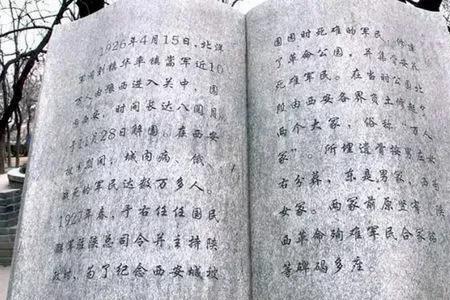 1926年4月15日,北洋
军阀刘镇华率镇嵩军近10
万人由潼西进入关中,围
西安,时间长达八个月
于11月28日解围。在西安
被围期间,城内病、饿、
死的军民达数万多人。
1927年春,于右任任国民
联军驻陕总司令并主持陕
政时,为了纪念西安城被
围困时死难的军民,修建
了革命公园,并集骨安葬
死难军民。在当时公园北
段由西安各界负土修起了
两个大冢,俗称"万人
冢"。所埋遗骨按男左女
右分葬,东是男冢,西为
女冢。两冢前原坐落陕
西革命殉难军民合家
等碑碣多座。